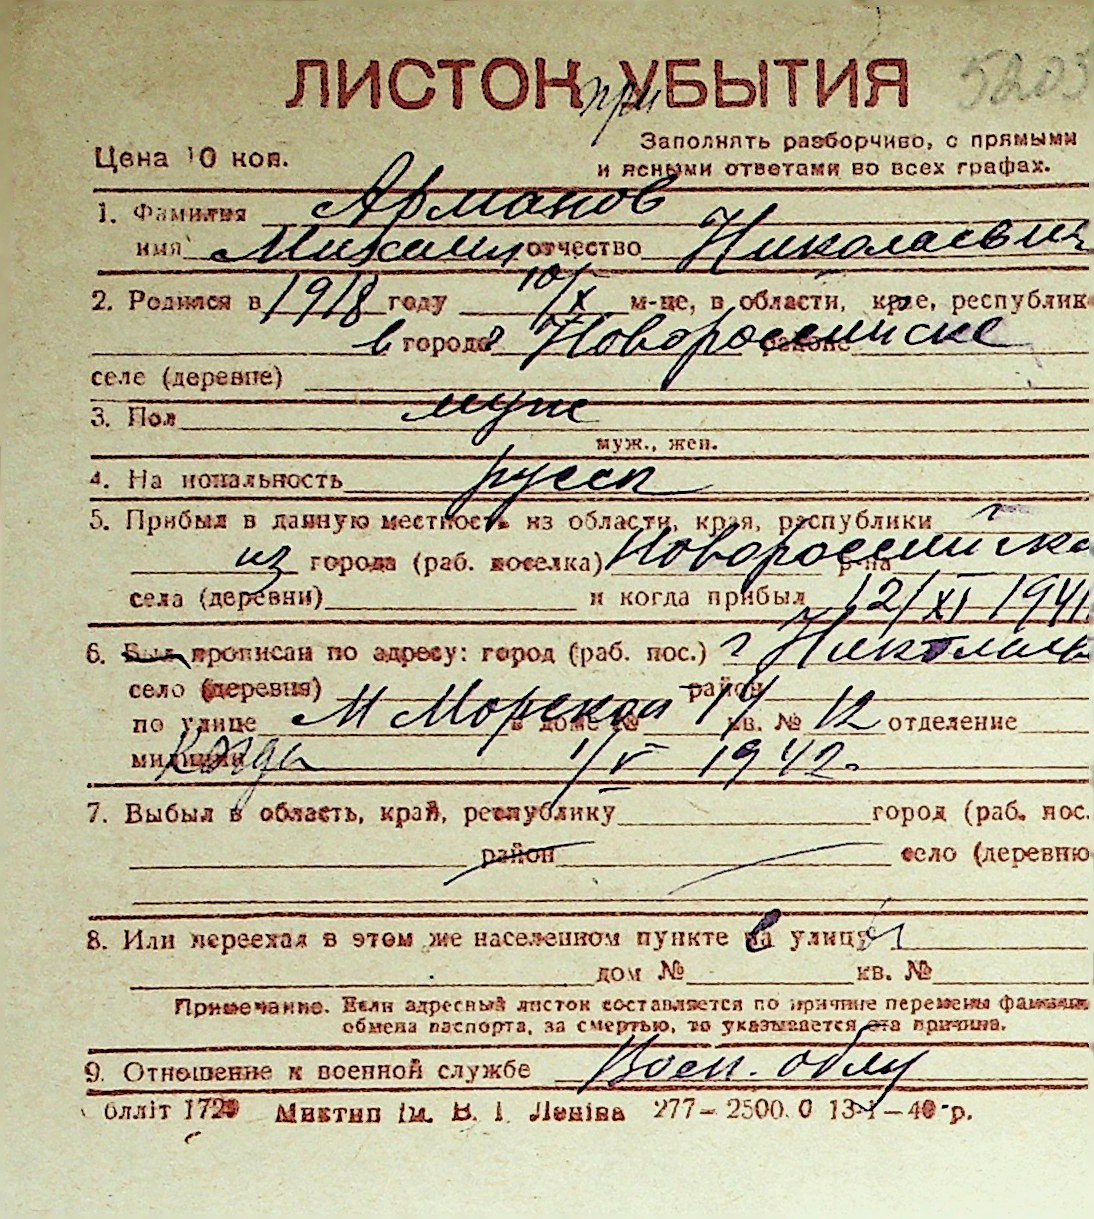 ЛИСТОК при УБЫТИЯ 5203
Цена 10 коп.
Заполнять разборчиво, с прямыми
и ясными ответами во всех графах.
1. Фамилия Арманов
имя Михаил отчество Николаевич
2. Родился в 1918 году 10/X м-це, в области, крае, республик
в городе Новороссийске районе
селе (деревне)
3. Пол муж
муж., жен.
4. На иональность русск
5. Прибыл в данную местность из области, края, республики г
из города (раб. поселка) Новороссийска р-на
села (деревни) и когда прибыл 12/XI 1941
6. Был прописан по адресу: город (раб. пос.) г Николаев
село (деревня) район
по улице М Морской 14 в доме № кв. № 12 отделение
милиции Когда 1/V 1942.
7. Выбыл в область, край, республику город (раб. пос.
район село (деревню
8. Или переехал в этом же населенном пункте на улицу
дом № кв. №
Примечание. Если адресный листок составляется по причине перемены фамилии
обмена паспорта, за смертью, то указывается эта причина.
9. Отношение к военной службе Воен. обяз
блліт 1729 Миктип ім. В. І. Леніна 277 – 2500. 0 13-1 – 40 р.